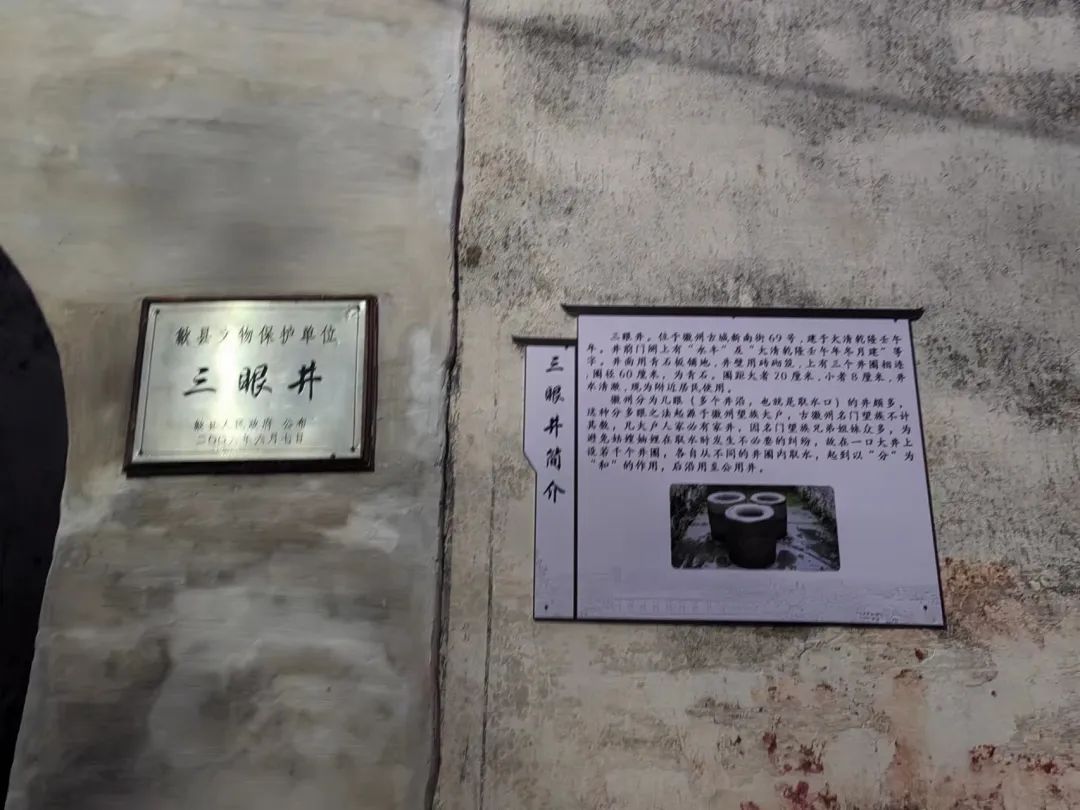 歙县文物保护单位
三眼井
歙县人民政府 公布
二〇〇六年六月七日
三眼井简介
三眼井,位于徽州古城新南街69号,建于大清乾隆壬午
年,井前门阙上有“水丰”及“大清乾隆壬午年冬月建”等
字,井面用青石板铺地,井壁用砖砌筑,上有三个井圈相连
,圈径60厘米,为青石,圈距大者20厘米,小者8厘米,井
水清澈,现为附近居民使用。
徽州分为几眼(多个井沿,也就是取水口)的井颇多,
这种分多眼之法起源于徽州望族大户,古徽州名门望族不计
其数,凡大户人家必有家井,因名门望族兄弟姐妹众多,为
避免姑嫂妯娌在取水时发生不必要的纠纷,故在一口大井上
设若干个井圈,各自从不同的井圈内取水,起到以“分”为
“和”的作用,后沿用至公用井。